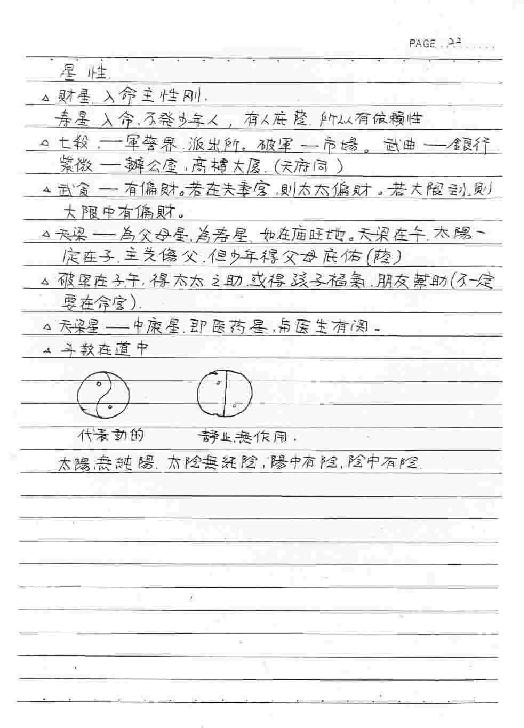 PAGE 22
星性
△ 財星入命主性剛.
壽星入命,不發少年人,有人庇陰,所以有依賴性
△ 七殺,──軍警界.派出所。破軍──市場。武曲──銀行
紫微──辦公室,高樓大廈.(天府同)
△ 武貪──有偏財。若在夫妻宮,則太太偏財。若大限到,則
大限中有偏財。
△ 天梁──為父母星,為壽星.如在庙旺地。天梁在午,太陽一
定在子.主先傷父,但少年得父母庇佑(陰)
△ 破軍在子午,得太太之助.或得孩子福氣.朋友幫助(不一定
要在命宮).
△ 天梁星──中藥星.即医药星,與医生有関。
△ 斗數在道中
代表動的 靜止無作用.
太陽無純陽.太陰無純陰,陽中有陰,陰中有陰.